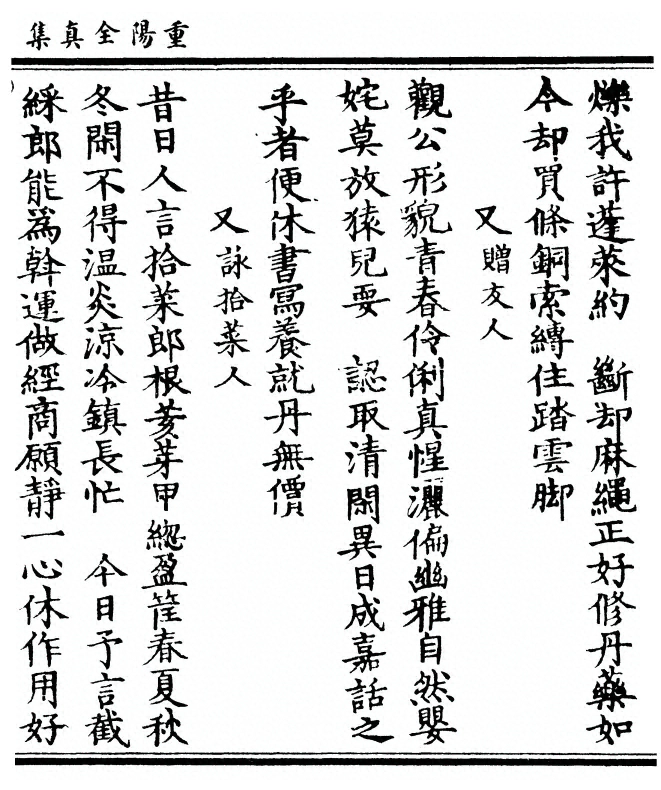 重陽全真集
爍我許蓬萊約　斷却麻繩正好修丹藥如
今却買條銅索縛住踏雲脚
又贈友人
觀公形貌青春伶俐真惺灑偏幽雅自然嬰
姹莫放猿兒耍　認取清閑異日成嘉話之
乎者便休書寫養就丹無價
又詠拾菜人
昔日人言拾菜郎根荄芽甲總盈筐春夏秋
冬閑不得温炎涼冷鎮長忙　今日予言截
綵郎能為斡運做經商願靜一心休作用好